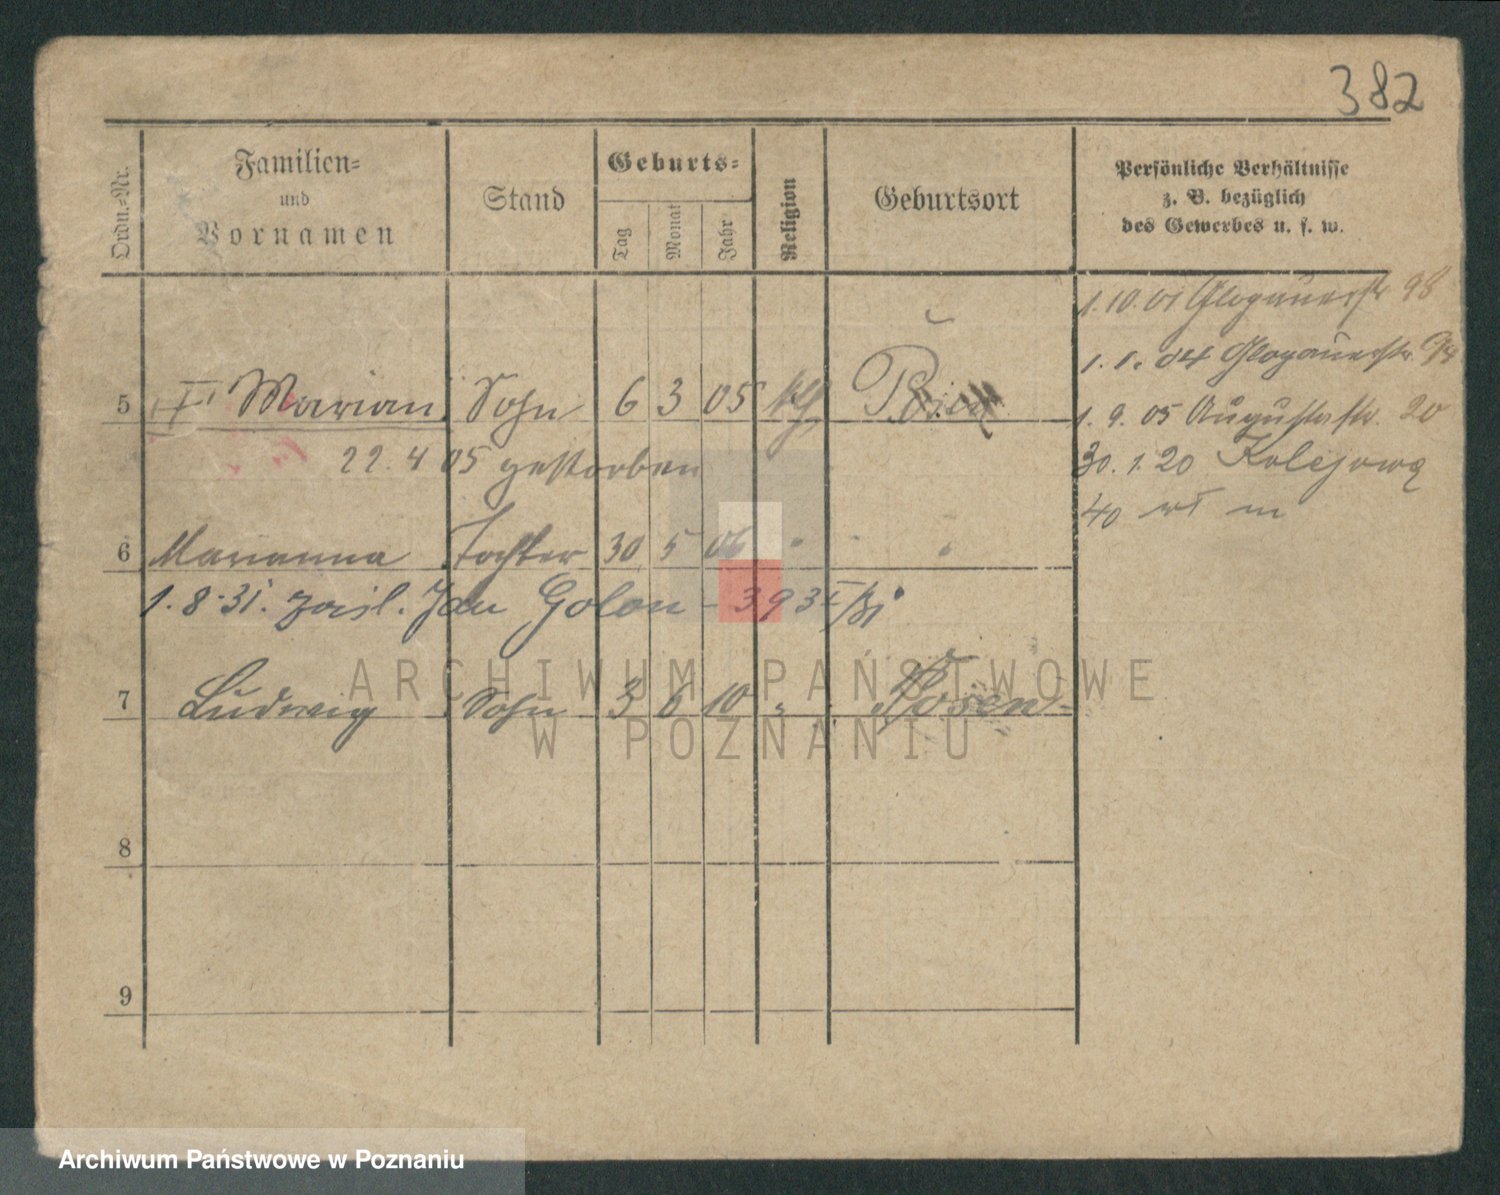 382
Ordn.-Nr.
Familien-
und
Vornamen
Stand
Geburts-
Tag
Monat
Jahr
Religion
Geburtsort
Persönliche Verhältnisse
z. B. bezüglich
des Gewerbes u. s. w.
1.10.01 Glogauerstr 98
1.1.04 Glogauerstr.
5 Marian Sohn 6 3 05 kth
1.9.05 Augustastr. 20
22.4 05 gestorben
30.1.20 Kolejowa
40 m
6 Marianna Tochter 30 5 06 "
1.8.31. zaśl. Jan Golon -
7 Ludwig Sohn 3 6 10 " Posen
8
9
ARCHIWUM PAŃSTWOWE
W POZNANIU
Archiwum Państwowe w Poznaniu